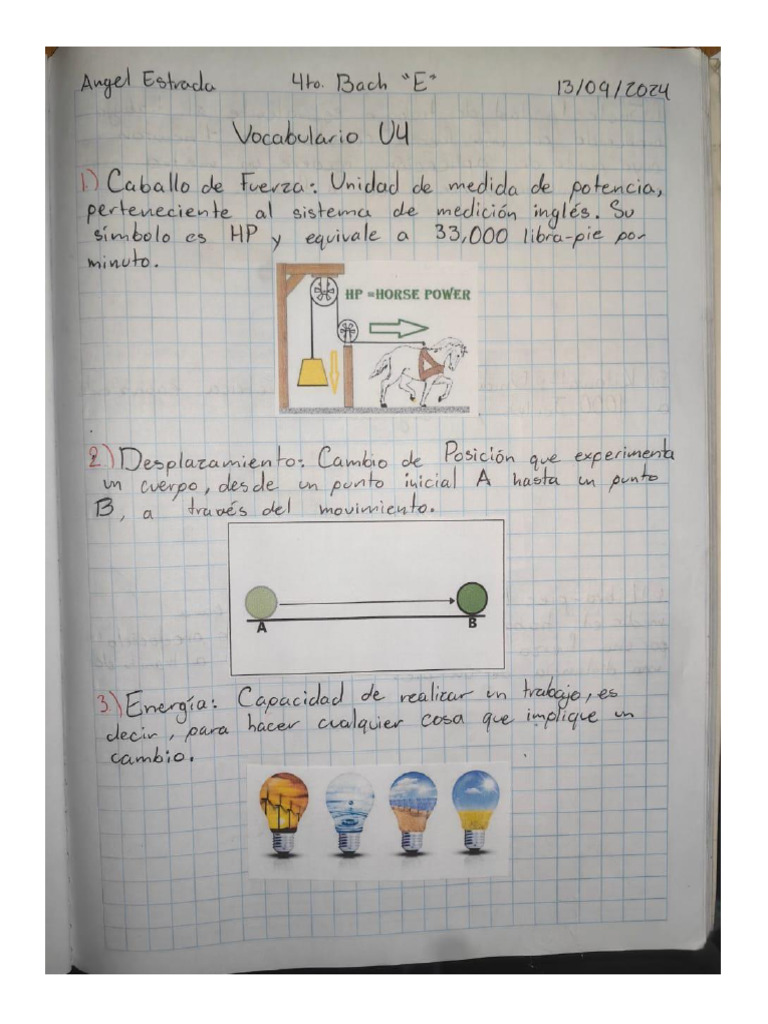 Angel Estrada 4to. Bach "E" 13/09/2024
Vocabulario U4
1.) Caballo de Fuerza: Unidad de medida de potencia,
perteneciente al sistema de medición inglés. Su
símbolo es HP y equivale a 33,000 libra-pie por
minuto.
HP =HORSE POWER
2.) Desplazamiento: Cambio de Posición que experimenta
un cuerpo, desde un punto inicial A hasta un punto
B, a través del movimiento.
A B
3.) Energía: Capacidad de realizar un trabajo, es
decir, para hacer cualquier cosa que implique un
cambio.